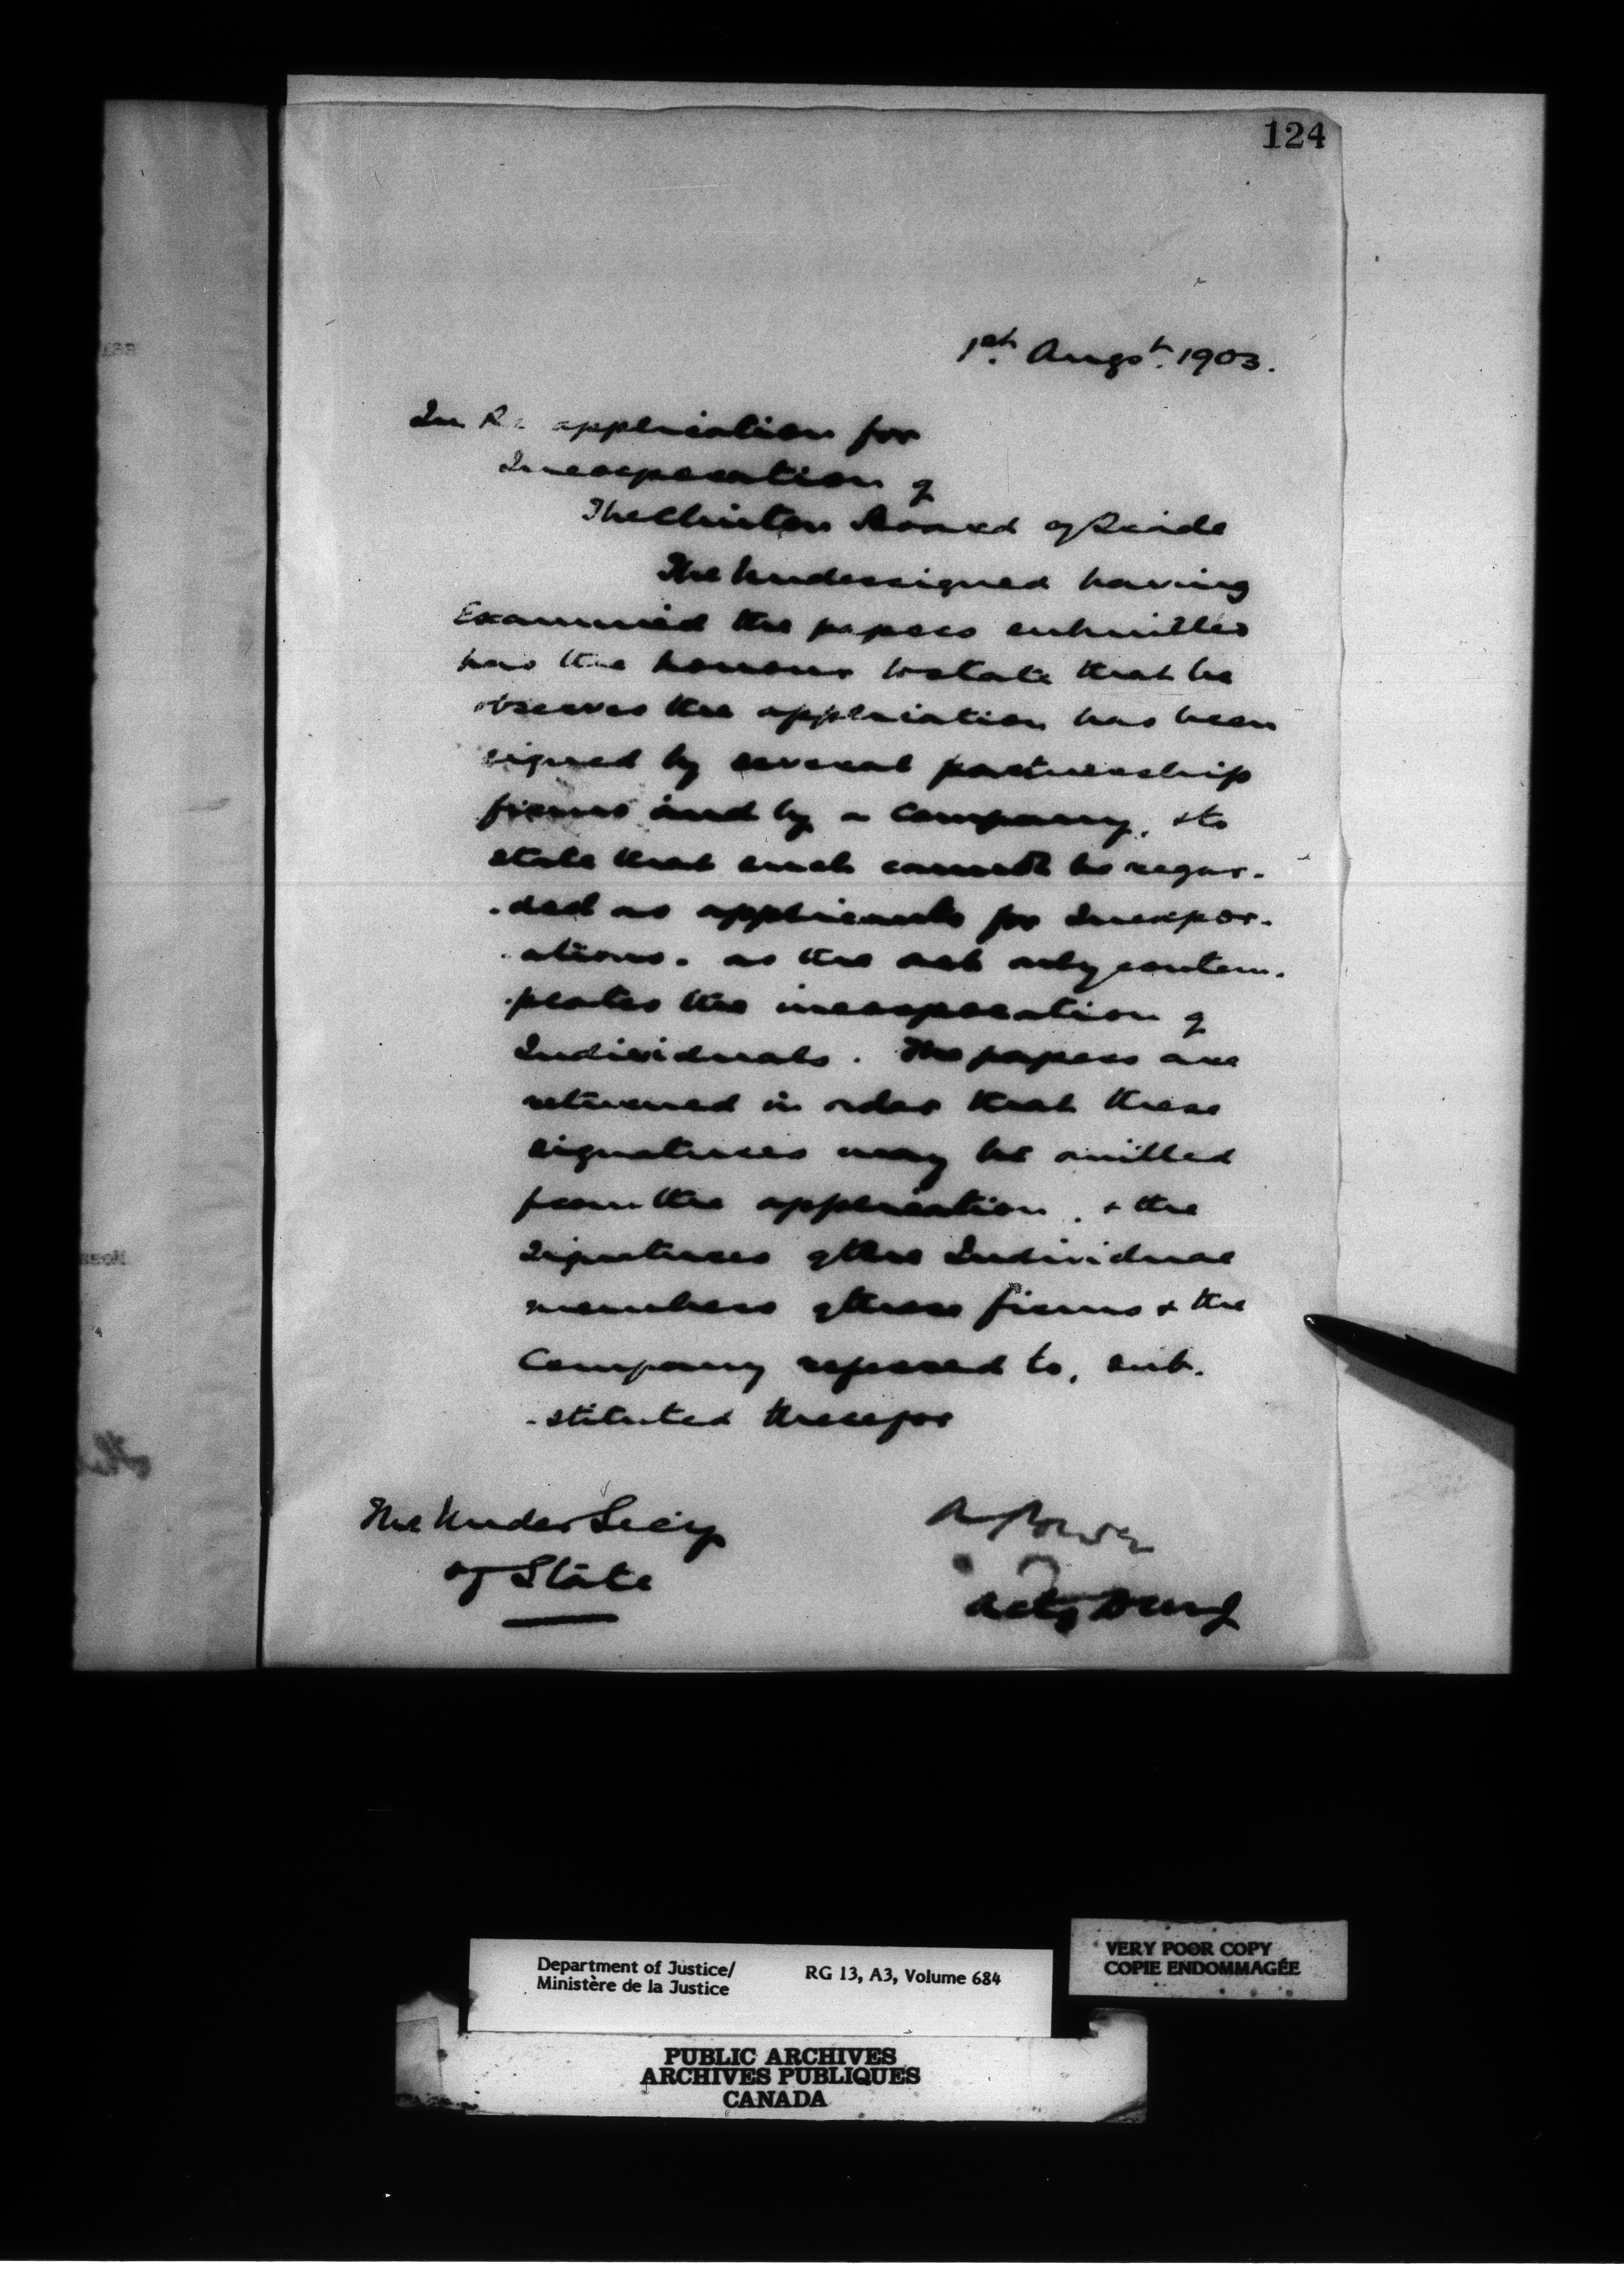 124
1st. Augst. 1903.
In Re application for
Incorporation of
The Clinton Board of Trade
The Undersigned having
Examined the papers submitted
has the honour to state that he
observes the application has been
signed by several partnership
firms and by a Company, & to
state that such cannot be regar-
-ded as applicants for Incorpor-
-ations. as the act only contem-
-plates the incorporation of
Individuals. The papers are
returned in order that these
signatures may be omitted
from the application, & the
Signatures of the Individual
members of these firms & the
Company referred to, sub-
-stituted therefor
The Under Secy
of State
A Power
Actg D M J
Department of Justice/
Ministère de la Justice
RG 13, A3, Volume 684
VERY POOR COPY
COPIE ENDOMMAGÉE
PUBLIC ARCHIVES
ARCHIVES PUBLIQUES
CANADA